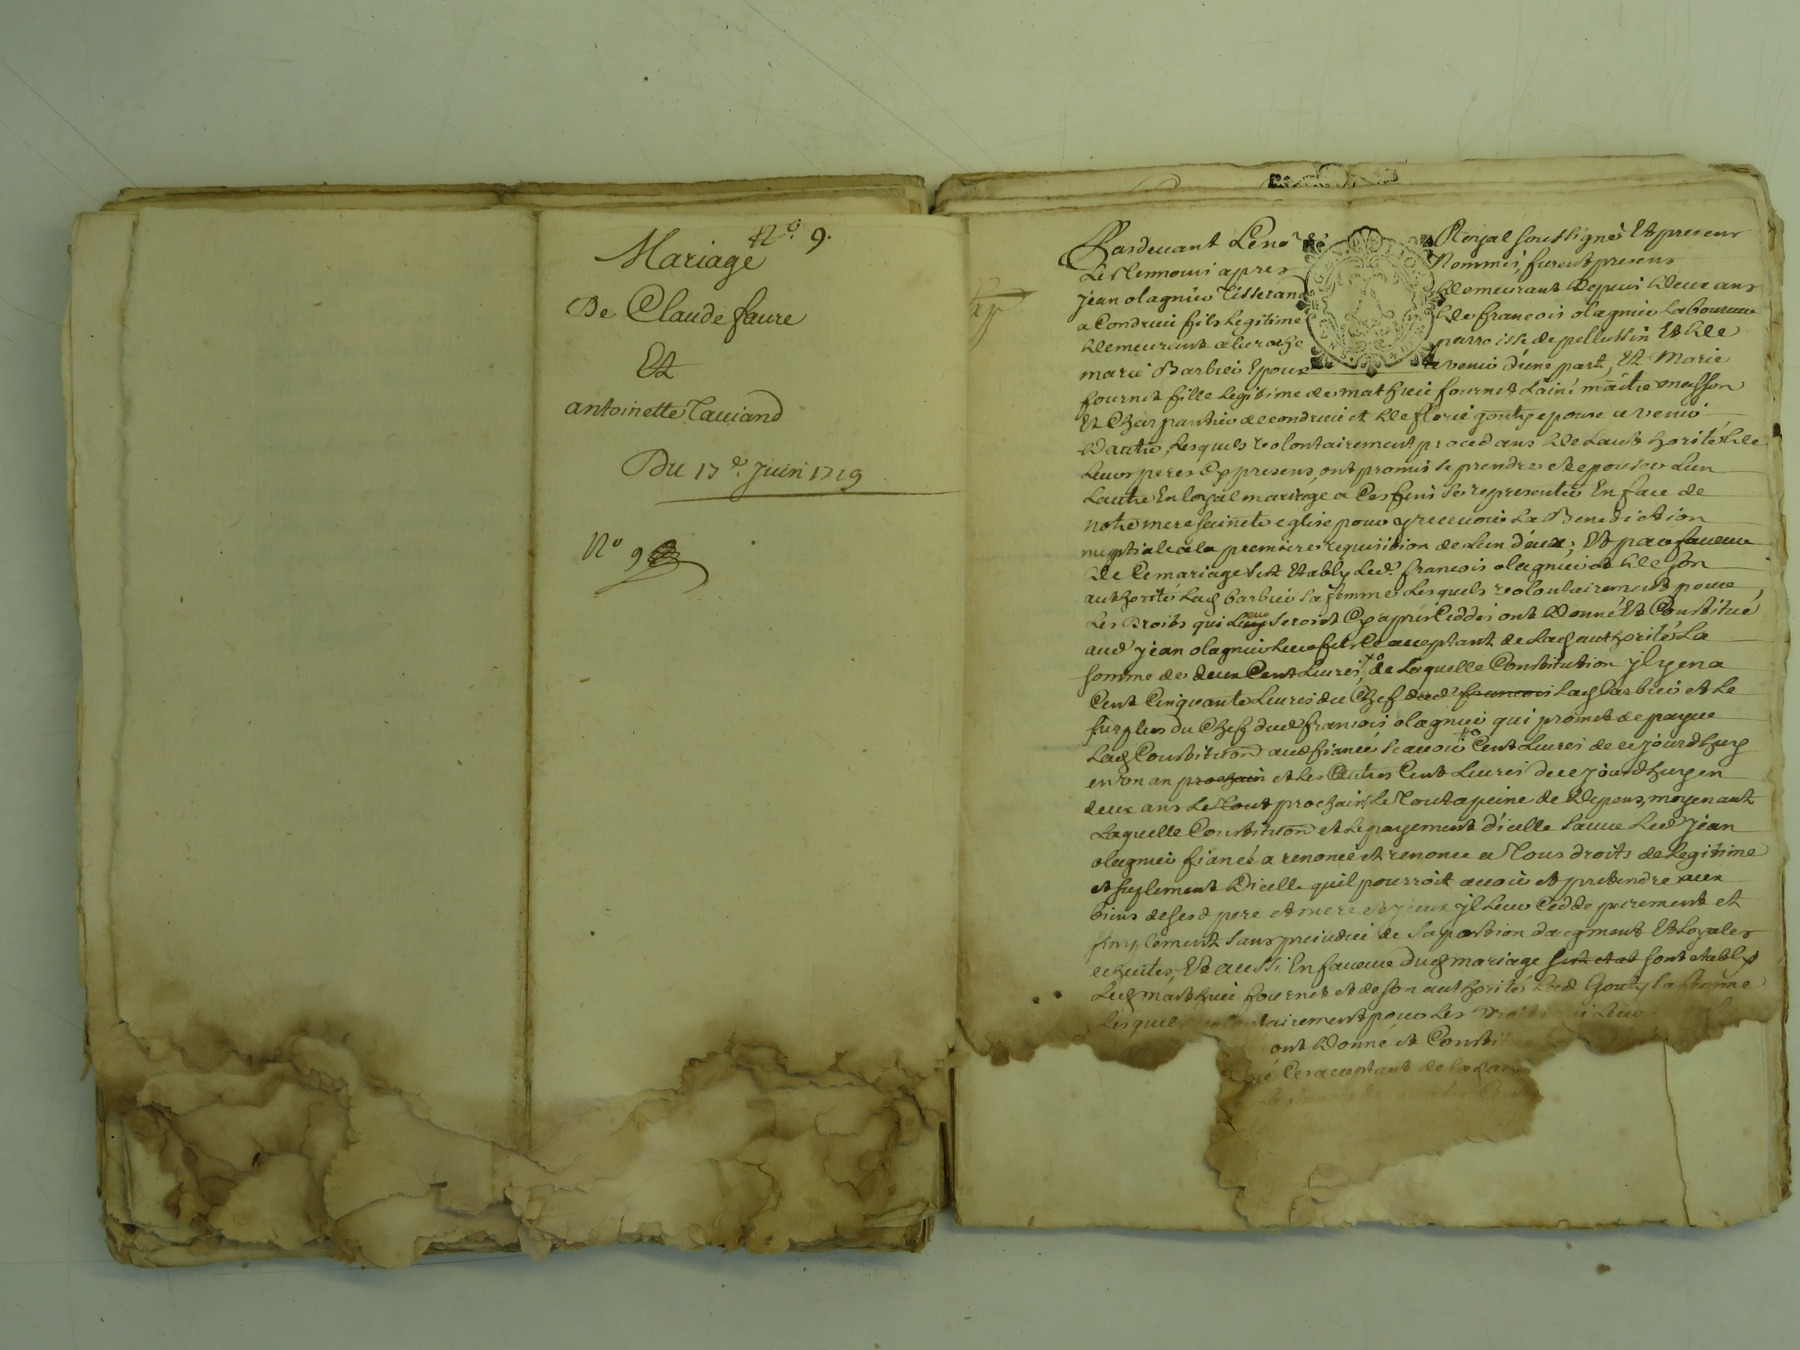 N.º 9.
Mariage
De Claude faure
Et
antoinette Tauiand
Du 17e. Juin 1719
Nº 9
Pardeuant Le no.re Royal soussigné Et presens
Les temoins apres Nommés, furent presens
jean olagnier Tisserand demeurant depuis deux ans
a Condrieu fils legitime de francois olagnier laboureur
demeurant a parroisse de pellussin Et de
marie Barbier Epoux avenir d'une part, Et Marie
fournet fille legitime de mathieu fournet L'ainé maitre masson
Et Charpantier de condrieu et de florie gonty epouse a venir
d'autre, Lesquels volontairement procedans de L'authorité de
Leurs peres Cy presens, ont promis se prendre et epouser L'un
L'autre En loyal mariage a Ces fins se representer En face de
notre mere saincte eglise pour y receuoir La Benediction
nuptiale a la premiere requisition de L'un d'eux; Et par faueur
de Ce mariage s'est Etably Led. francois olagnier et de son
authorité Lad barbier sa femme Lesquels volontairement pour
Les Droits qui Leur seroit Cy apres Ceddés ont donné Et Constitué
aud jean olagnier Leur fils Ce acceptant de Lad authorité La
somme de deux Cent Liures, de Laquelle Constitution jl y en a
Cent Cinquante Liures du Chef dud francois Lad Barbier et Le
surplus du Chef dud francois olagnier qui promet de payer
Lad Constitution aud fiancé scauoir Cent Liures de cejourdhuy
en un an prochain et Les Autres Cent Liures de cejourdhuy en
deux ans Le Tout prochain Le Tout a peine de Depens, moyenant
Laquelle Constitution et Le payement d'icelle sauue Led Jean
olagnier fiancé a renoncé et renonce a Tous droits de Legitime
et suplement D'icelle quil pourroit auoir et pretendre aux
biens de sesd pere et mere jl Leur Cedde purement et
simplement sans prejudice de sa portion d'augment Et Loyales
echutes, Et aussi En faueur dud mariage sest etab sont etablys
Led mathieu fournet et de son authorité Lad Gonty sa femme
Lesquels volontairement pour Les Droits qui Leur
ont Donné et Consti
Ce acceptant de lad